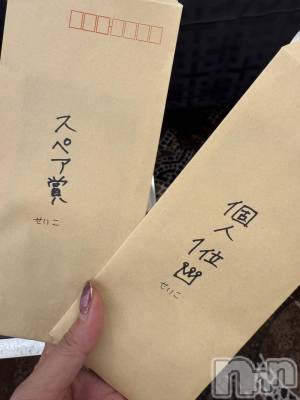 スペア賞
せいこ
個人1位
せいこ